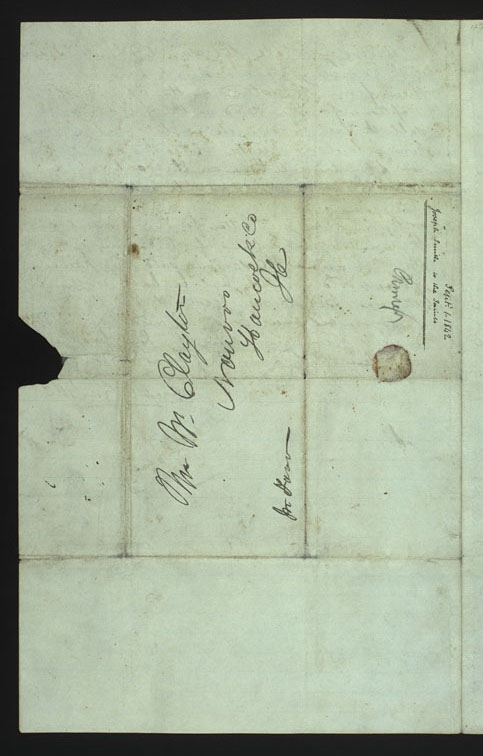 Mr Wm Clayton
Nauvoo
Hancock Co
Ill
Sept 1. 1842
Joseph Smith to the Saints